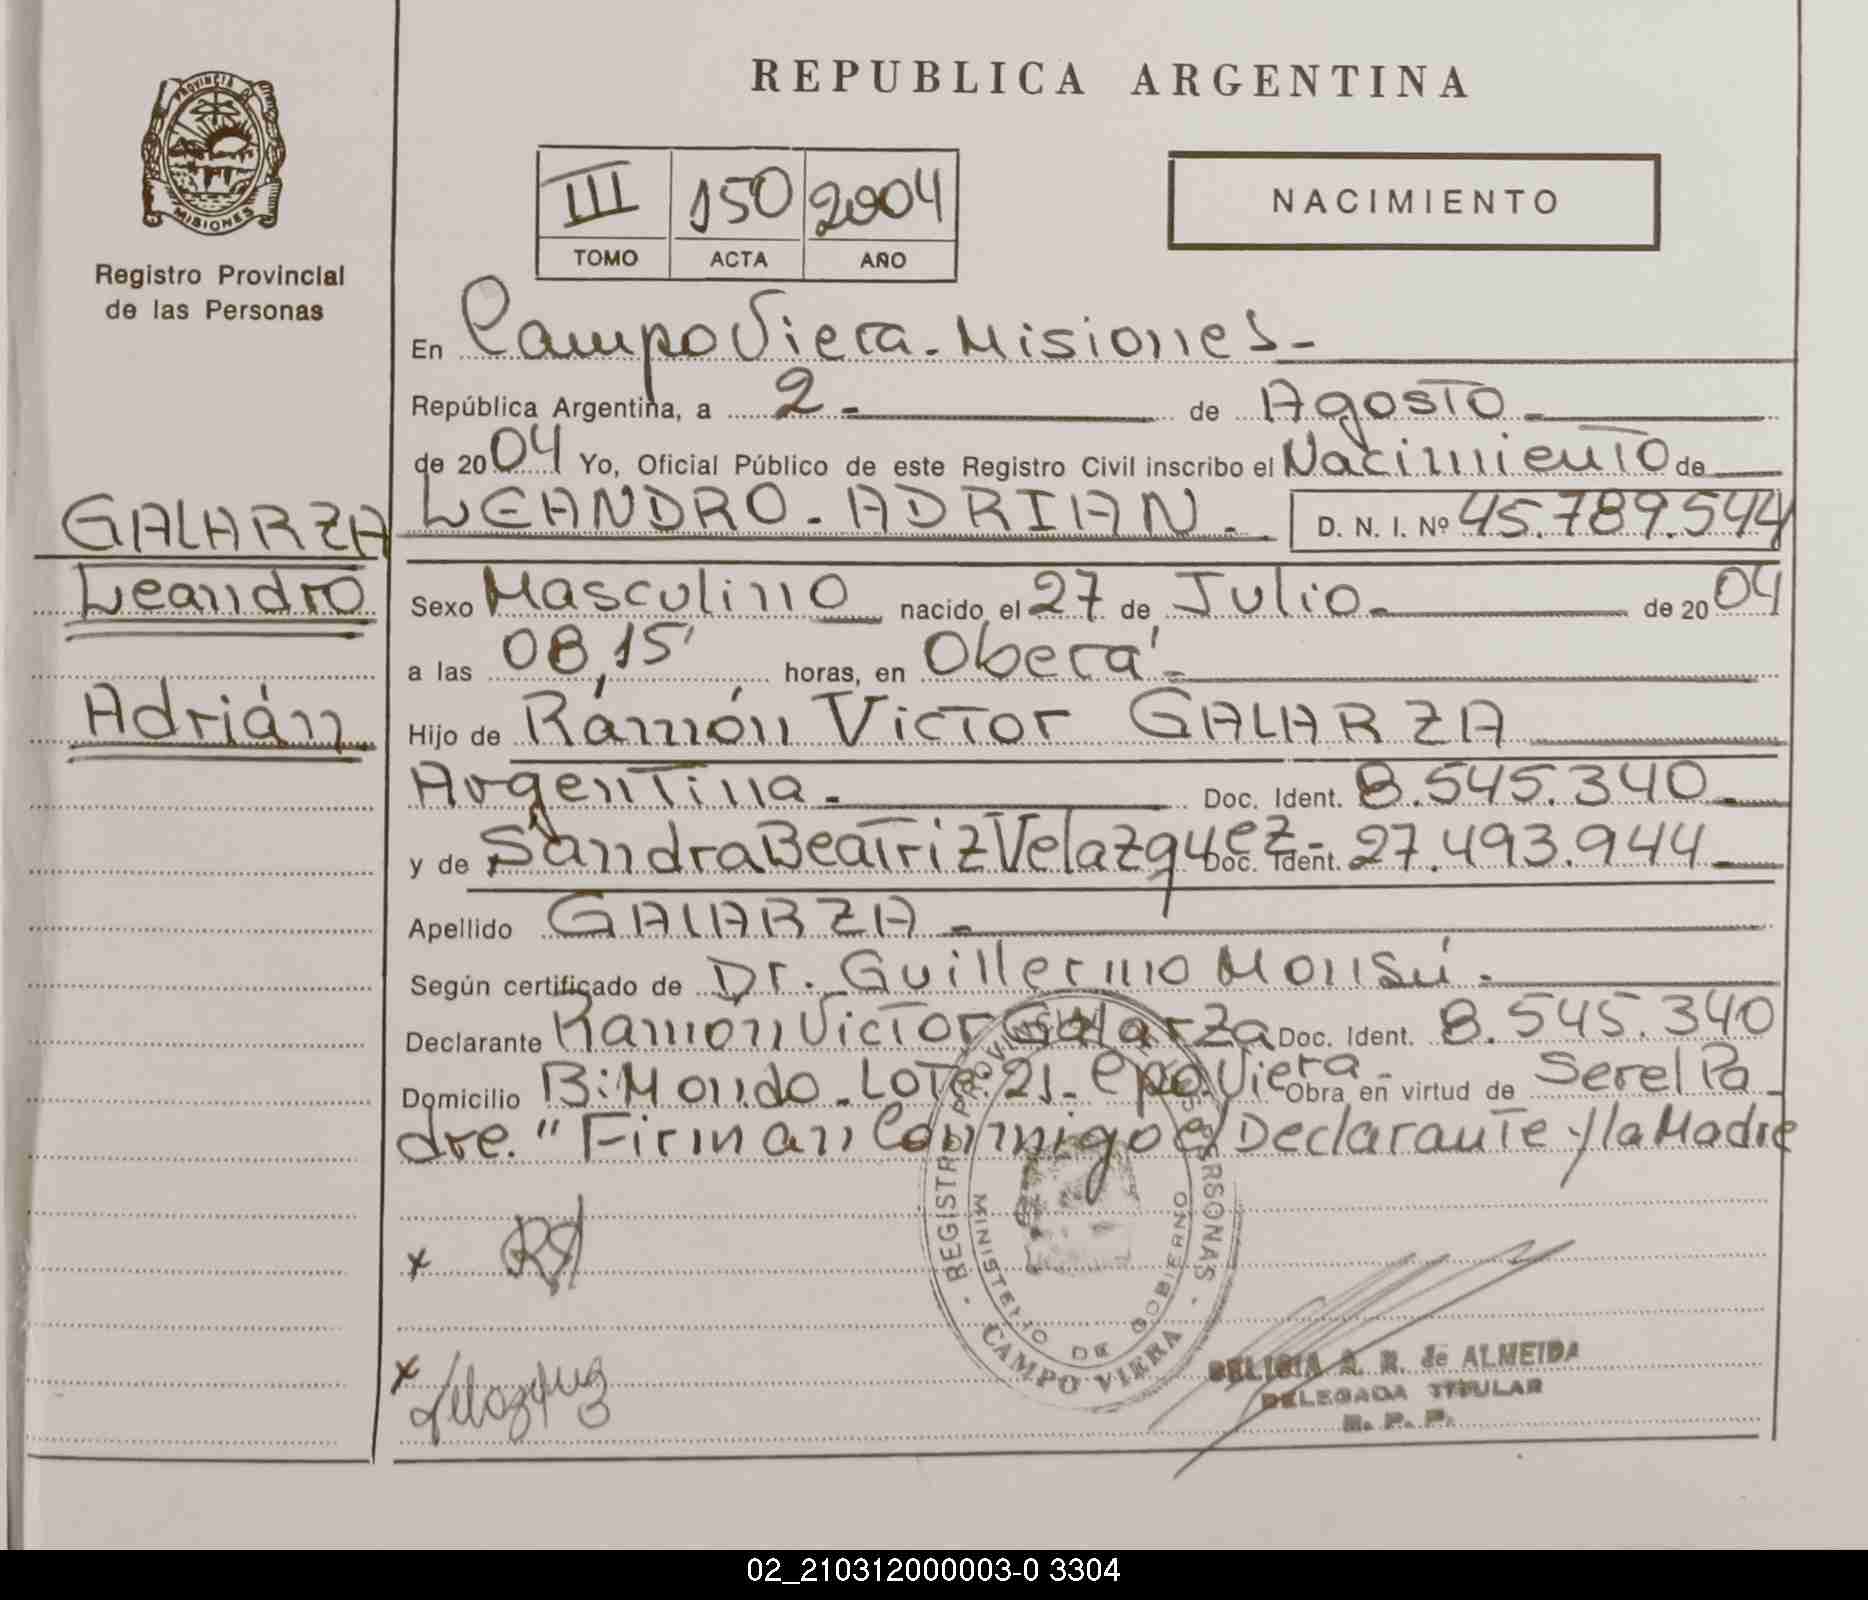 PROVINCIA DE
MISIONES
Registro Provincial
de las Personas
REPUBLICA ARGENTINA
III 150 2004
TOMO ACTA AÑO
NACIMIENTO
En Campo Viera - Misiones -
República Argentina, a 2 - de Agosto -
de 2004 Yo, Oficial Público de este Registro Civil inscribo el Nacimiento de
GALARZA
Leandro
Adrián
LEANDRO - ADRIAN - D. N. I. Nº 45.789.544
Sexo Masculino nacido el 27 de Julio - de 2004
a las 08,15' horas, en Oberá -
Hijo de Rámón Victor GALARZA
Argentina - Doc. Ident. 8.545.340 -
y de Sandra Beatriz Velazquez - Doc. Ident. 27.493.944 -
Apellido GALARZA -
Según certificado de Dr. Guillermo Monsú -
Declarante Ramón Victor Galarza Doc. Ident. 8.545.340
Domicilio B: Mondo - Lote: 21 - Cpo. Viera - Obra en virtud de Ser el Pa
dre. " Firman Conmigo el Declarante y la Madre
x
x Velazquez
REGISTRO PROVINCIAL DE LAS PERSONAS
MINISTERIO DE GOBIERNO
CAMPO VIERA
A. R. de ALMEIDA
DELEGADA TITULAR
R. P. P.
02_210312000003-0 3304